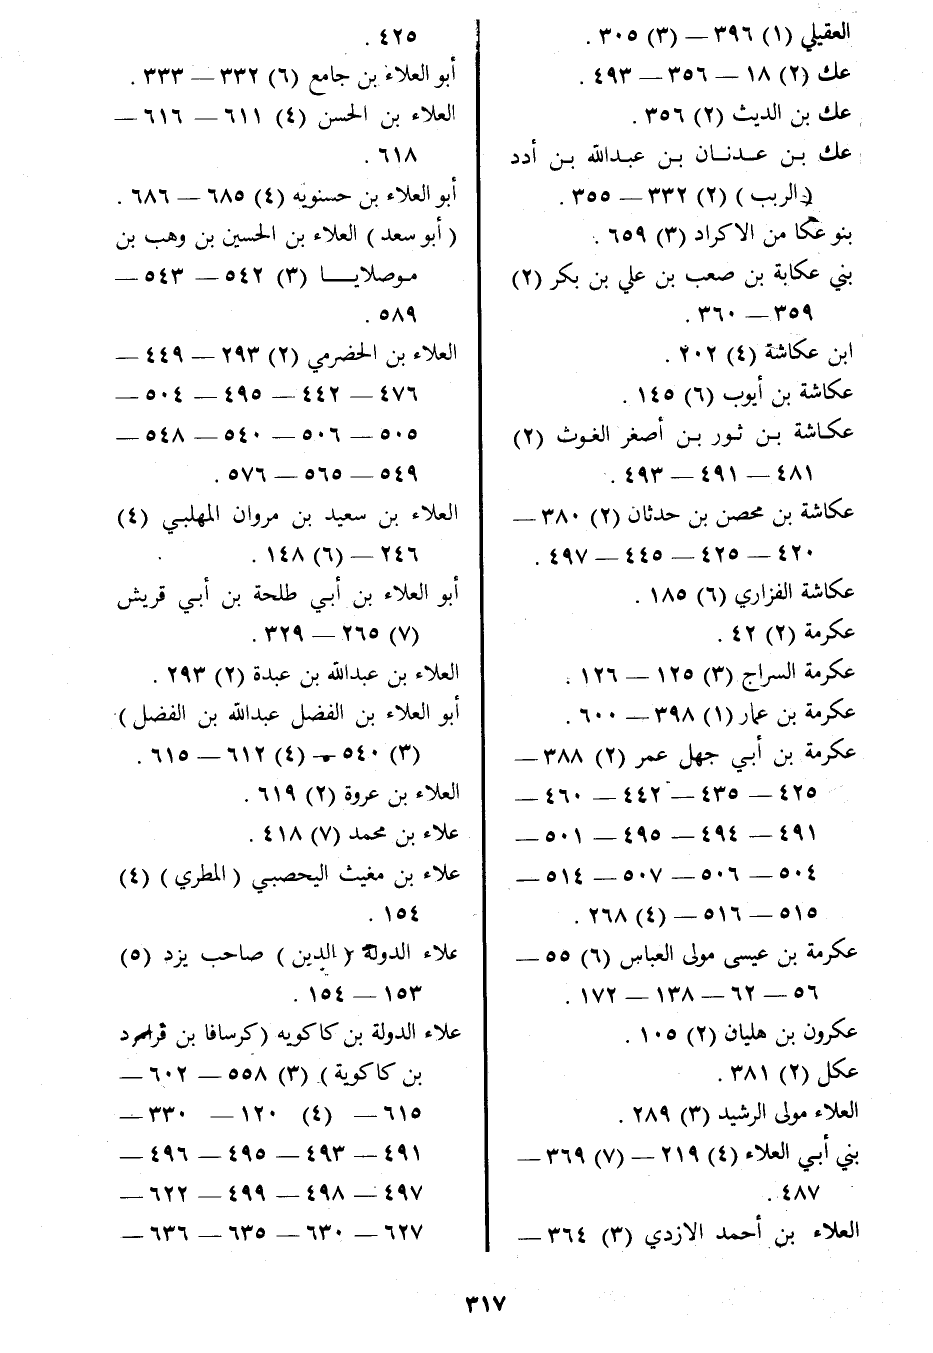 العقيلي (١) ٣٩٦ — (٣) ٣٠٥ .
عك (٢) ١٨ — ٣٥٦ — ٤٩٣ .
عك بن الديث (٢) ٣٥٦ .
عك بن عدنان بن عبدالله بن أدد
(الريب) (٢) ٣٣٢ — ٣٥٥ .
بنو عكا من الاكراد (٣) ٦٥٩ .
بني عكابة بن صعب بن علي بن بكر (٢)
٣٥٩ — ٣٦٠ .
ابن عكاشة (٤) ٢٠٢ .
عكاشة بن أيوب (٦) ١٤٥ .
عكاشة بن ثور بن أصغر الغوث (٢)
٤٨١ — ٤٩١ — ٤٩٣ .
عكاشة بن محصن بن حدثان (٢) ٣٨٠ —
٤٢٠ — ٤٢٥ — ٤٤٥ — ٤٩٧ .
عكاشة الفزاري (٦) ١٨٥ .
عكرمة (٢) ٤٢ .
عكرمة السراج (٣) ١٢٥ — ١٢٦ .
عكرمة بن عمار (١) ٣٩٨ — ٦٠٠ .
عكرمة بن أبي جهل عمر (٢) ٣٨٨ —
٤٢٥ — ٤٣٥ — ٤٤٢ — ٤٦٠ —
٤٩١ — ٤٩٤ — ٤٩٥ — ٥٠١ —
٥٠٤ — ٥٠٦ — ٥٠٧ — ٥١٤ —
٥١٥ — ٥١٦ — (٤) ٢٦٨ .
عكرمة بن عيسى مولى العباس (٦) ٥٥ —
٥٦ — ٦٢ — ١٣٨ — ١٧٢ .
عكرون بن هليان (٢) ١٠٥ .
عكل (٢) ٣٨١ .
العلاء مولى الرشيد (٣) ٢٨٩ .
بني أبي العلاء (٤) ٢١٩ — (٧) ٣٦٩ —
٤٨٧ .
العلاء بن أحمد الازدي (٣) ٣٦٤ —
٤٢٥ .
أبو العلاء بن جامع (٦) ٣٣٢ — ٣٣٣ .
العلاء بن الحسن (٤) ٦١١ — ٦١٦ —
٦١٨ .
أبو العلاء بن حسنويه (٤) ٦٨٥ — ٦٨٦ .
( أبو سعد ) العلاء بن الحسين بن وهب بن
موصلايا (٣) ٥٤٢ — ٥٤٣ —
٥٨٩ .
العلاء بن الحضرمي (٢) ٢٩٣ — ٤٤٩ —
٤٧٦ — ٤٤٢ — ٤٩٥ — ٥٠٤ —
٥٠٥ — ٥٠٦ — ٥٤٠ — ٥٤٨ —
٥٤٩ — ٥٦٥ — ٥٧٦ .
العلاء بن سعيد بن مروان المهلبي (٤)
٢٤٦ — (٦) ١٤٨ .
أبو العلاء بن أبي طلحة بن أبي قريش
(٧) ٢٦٥ — ٣٢٩ .
العلاء بن عبدالله بن عبدة (٢) ٢٩٣ .
أبو العلاء بن الفضل عبدالله بن الفضل )
(٣) ٥٤٠ — (٤) ٦١٢ — ٦١٥ .
العلاء بن عروة (٢) ٦١٩ .
علاء بن محمد (٧) ٤١٨ .
علاء بن مغيث اليحصبي ( المطري ) (٤)
١٥٤ .
علاء الدولة ( الدين ) صاحب يزد (٥)
١٥٣ — ١٥٤ .
علاء الدولة بن كاكويه (كرسافا بن
بن كاكوية ) (٣) ٥٥٨ — ٦٠٢ —
٦١٥ — (٤) ١٢٠ — ٣٣٠ —
٤٩١ — ٤٩٣ — ٤٩٥ — ٤٩٦ —
٤٩٧ — ٤٩٨ — ٤٩٩ — ٦٢٢ —
٦٢٧ — ٦٣٠ — ٦٣٥ — ٦٣٦ —
٣١٧